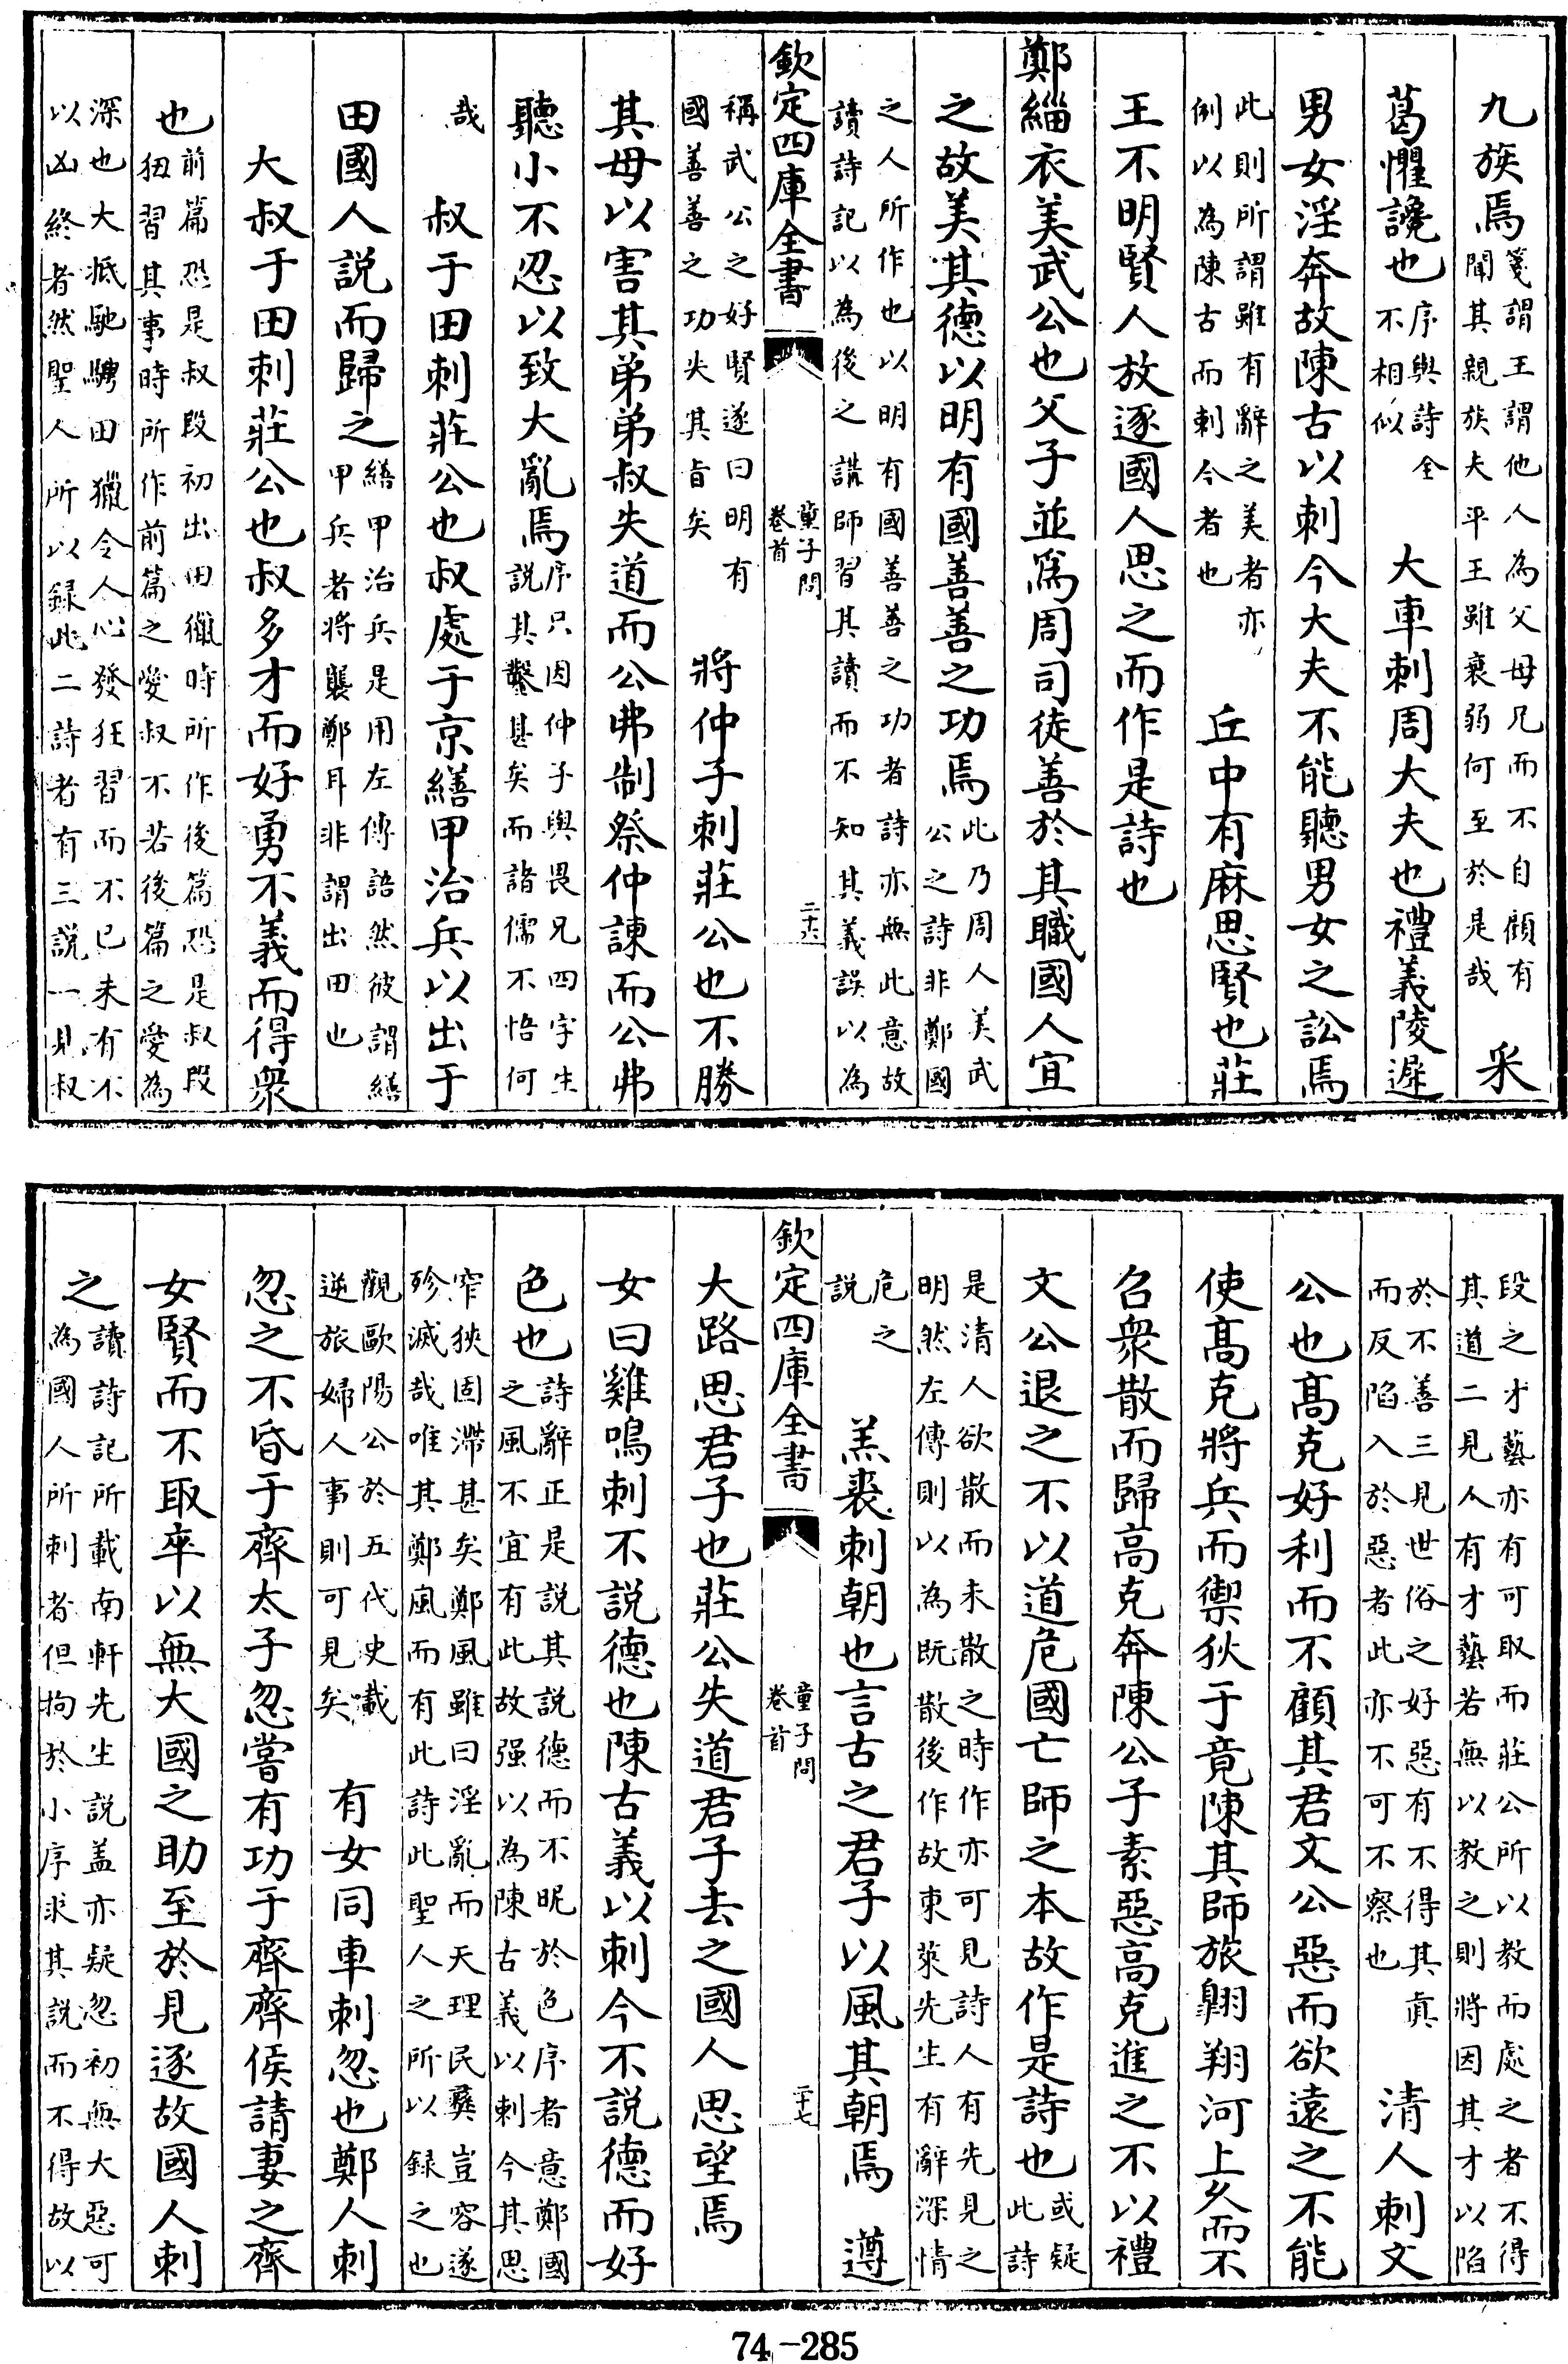 九族焉箋謂王謂他人為父母兄而不自顧有聞其親族夫平王雖衰弱何至於是哉 采
葛懼讒也序與詩全不相似 大車刺周大夫也禮義陵遲
男女淫奔故陳古以刺今大夫不能聽男女之訟焉
此則所謂雖有辭之美者亦例以為陳古而刺今者也 丘中有麻思賢也莊
王不明賢人放逐國人思之而作是詩也
鄭緇衣美武公也父子並為周司徒善於其職國人宜
之故美其德以明有國善善之功焉此乃周人美武公之詩非鄭國
之人所作也以明有國善善之功者詩亦無此意故讀詩記以為後之講師習其讀而不知其義誤以為
欽定四庫全書 童子問卷首 二十六
稱武公之好賢遂曰明有國善善之功失其旨矣 將仲子刺莊公也不勝
其母以害其弟弟叔失道而公弗制祭仲諫而公弗
聽小不忍以致大亂焉序只因仲子與畏兄四字生說其鑿甚矣而諸儒不悟何
哉 叔于田刺莊公也叔處于京繕甲治兵以出于
田國人說而歸之繕甲治兵是用左傳語然彼謂繕甲兵者將襲鄭耳非謂出田也
大叔于田刺莊公也叔多才而好勇不義而得衆
也前篇恐是叔段初出田獵時所作後篇恐是叔段狃習其事時所作前篇之愛叔不若後篇之愛為
深也大抵馳騁田獵令人心發狂習而不已未有不以凶終者然聖人所以録此二詩者有三說一見叔
段之才藝亦有可取而莊公所以教而處之者不得其道二見人有才藝若無以教之則將因其才以陷
於不善三見世俗之好惡有不得其真而反陷入於惡者此亦不可不察也 清人刺文
公也髙克好利而不顧其君文公惡而欲遠之不能
使髙克將兵而禦狄于竟陳其師旅翺翔河上乆而不
召衆散而歸高克奔陳公子素惡高克進之不以禮
文公退之不以道危國亡師之本故作是詩也或疑此詩
是清人欲散而未散之時作亦可見詩人有先見之明然左傳則以為既散後作故東萊先生有辭深情
危之說 羔裘刺朝也言古之君子以風其朝焉 遵
欽定四庫全書 童子問卷首 二十七
大路思君子也莊公失道君子去之國人思望焉
女曰雞鳴刺不說德也陳古義以刺今不說德而好
色也詩辭正是說其說德而不昵於色序者意鄭國之風不宜有此故强以為陳古義以刺今其思
窄狹固滯甚矣鄭風雖曰淫亂而天理民彞豈容遂殄滅哉唯其鄭風而有此詩此聖人之所以録之也
觀歐陽公於五代史嘅逆旅婦人事則可見矣 有女同車刺忽也鄭人刺
忽之不昏于齊太子忽嘗有功于齊齊侯請妻之齊
女賢而不取卒以無大國之助至於見逐故國人刺
之讀詩記所載南軒先生說盖亦疑忽初無大惡可為國人所刺者但拘於小序求其說而不得故以
74-285